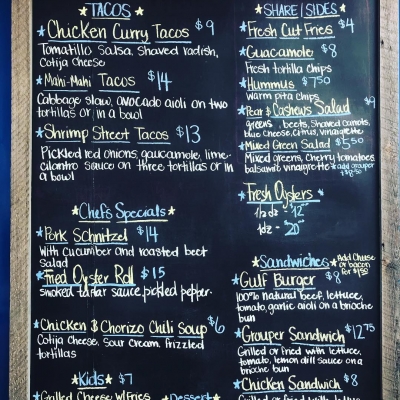 ★TACOS★
★Chicken Curry Tacos $9
Tomatillo Salsa, Shaved radish,
Cotija cheese
★Mahi-Mahi Tacos $14
Cabbage slaw, avocado aioli on two
tortillas or in a bowl
★Shrimp Street Tacos $13
Pickled red onions, guacamole, lime-
cilantro sauce on three tortillas or in
a bowl
★Chef's Specials★
★Pork Schnitzel $14
with cucumber and roasted beet
salad
★Fried Oyster Roll $15
smoked tartar sauce, pickled pepper.
★Chicken & Chorizo Chili Soup $6
Cotija Cheese, Sour cream, frizzled
tortillas
★Kids★ $7
★Grilled Cheese w/Fries
★Dessert★
★SHARE/SIDES★
★Fresh Cut Fries $4
★Guacamole $8
Fresh tortilla chips
★Hummus $7.50
warm pita chips
★Pear & Cashews Salad $9
greens, beets, shaved carrots,
blue cheese, citrus, vinaigrette
★Mixed Green Salad $5.50
Mixed greens, cherry tomatoes
balsamic vinaigrette *add grouper
★Fresh Oysters★
1/2 dz - 12
1dz - 20
★Sandwiches★ Add Cheese
or bacon
for $1.50
★Gulf Burger $8
100% natural beef, lettuce,
tomato, garlic aioli on a brioche
bun
★Grouper Sandwich $12.75
Grilled or fried with lettuce,
tomato, lemon dill sauce on a
brioche bun
★Chicken Sandwich $8
Grilled or fried with lettuce